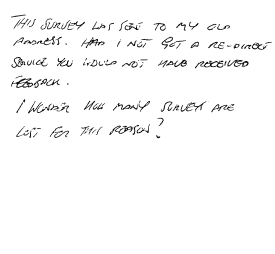 THIS SURVEY WAS SENT TO MY OLD
ADDRESS. HAD I NOT GOT A RE-DIRECT
SERVICE YOU WOULD NOT HAVE RECEIVED
FEEDBACK.
I WONDER HOW MANY SURVEYS ARE
LOST FOR THIS REASON?